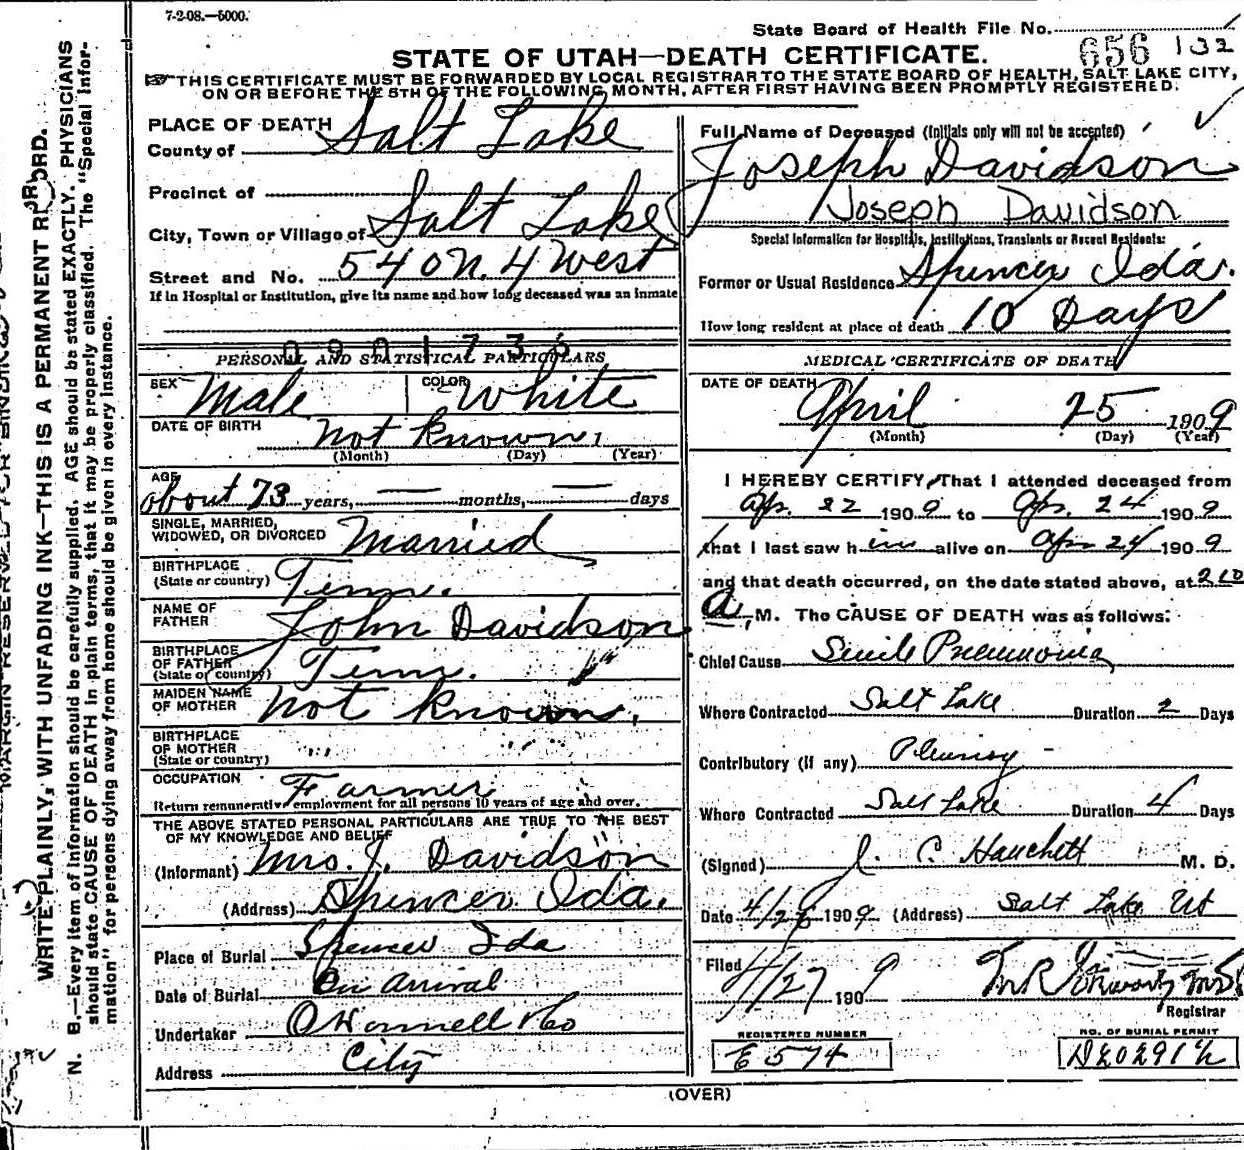 7-2-08.—5000.
State Board of Health File No.
656 132
STATE OF UTAH—DEATH CERTIFICATE.
THIS CERTIFICATE MUST BE FORWARDED BY LOCAL REGISTRAR TO THE STATE BOARD OF HEALTH, SALT LAKE CITY,
ON OR BEFORE THE 5TH OF THE FOLLOWING MONTH, AFTER FIRST HAVING BEEN PROMPTLY REGISTERED.
PLACE OF DEATH
County of Salt Lake
Precinct of
City, Town or Village of Salt Lake
Street and No. 540 N. 4 West
If in Hospital or Institution, give its name and how long deceased was an inmate
0901736
PERSONAL AND STATISTICAL PARTICULARS
SEX Male COLOR White
DATE OF BIRTH not known.
(Month) (Day) (Year)
AGE
about 73 years, — months, — days
SINGLE, MARRIED,
WIDOWED, OR DIVORCED Married
BIRTHPLACE
(State or country) Tenn.
NAME OF
FATHER John Davidson
BIRTHPLACE
OF FATHER
(State or country) Tenn.
MAIDEN NAME
OF MOTHER not known.
BIRTHPLACE
OF MOTHER
(State or country) " "
OCCUPATION Farmer
Return remunerative employment for all persons 10 years of age and over.
THE ABOVE STATED PERSONAL PARTICULARS ARE TRUE TO THE BEST
OF MY KNOWLEDGE AND BELIEF
(Informant) Mrs. J. Davidson
(Address) Spencer Ida.
Place of Burial Spencer Ida
Date of Burial On Arrival
Undertaker O'Donnell & Co
Address City
Full Name of Deceased (Initials only will not be accepted)
Joseph Davidson
Joseph Davidson
Special Information for Hospitals, Institutions, Transients or Recent Residents:
Former or Usual Residence Spencer Ida.
How long resident at place of death 10 Days
MEDICAL CERTIFICATE OF DEATH
DATE OF DEATH
April 25 1909
(Month) (Day) (Year)
I HEREBY CERTIFY, That I attended deceased from
Apr. 22 1909 to Apr. 24 1909
that I last saw him alive on Apr 24 1909
and that death occurred, on the date stated above, at 210
A. M. The CAUSE OF DEATH was as follows:
Chief Cause Senile Pneumonia
Where Contracted Salt Lake Duration 2 Days
Contributory (If any) Pleurisy
Where Contracted Salt Lake Duration 4 Days
(Signed) J. C. Hanchett M. D.
Date 4/26 1909. (Address) Salt Lake Ut
Filed 4/27 1909
Registrar
REGISTERED NUMBER
E 574
NO. OF BURIAL PERMIT
(OVER)
MARGIN RESERVED FOR BINDING
WRITE PLAINLY, WITH UNFADING INK—THIS IS A PERMANENT RECORD.
N. B.—Every item of information should be carefully supplied. AGE should be stated EXACTLY. PHYSICIANS
should state CAUSE OF DEATH in plain terms, that it may be properly classified. The "Special Infor-
mation" for persons dying away from home should be given in every instance.